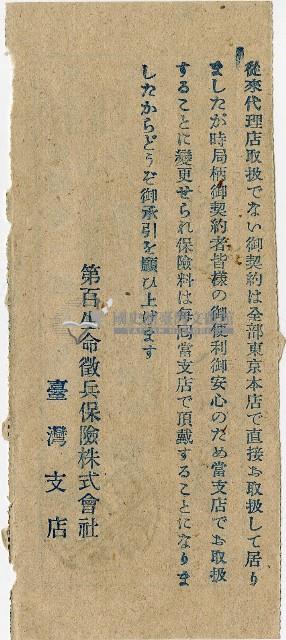 從來代理店取扱でない御契約は全部東京本店で直接お取扱して居り
ましたが時局柄御契約者皆様の御便利御安心のため當支店でお取扱
することに變更せられ保險料は每回當支店で頂戴することになりま
したからどうぞ御承引を願ひ上げます
第百生命徵兵保險株式會社
臺灣支店